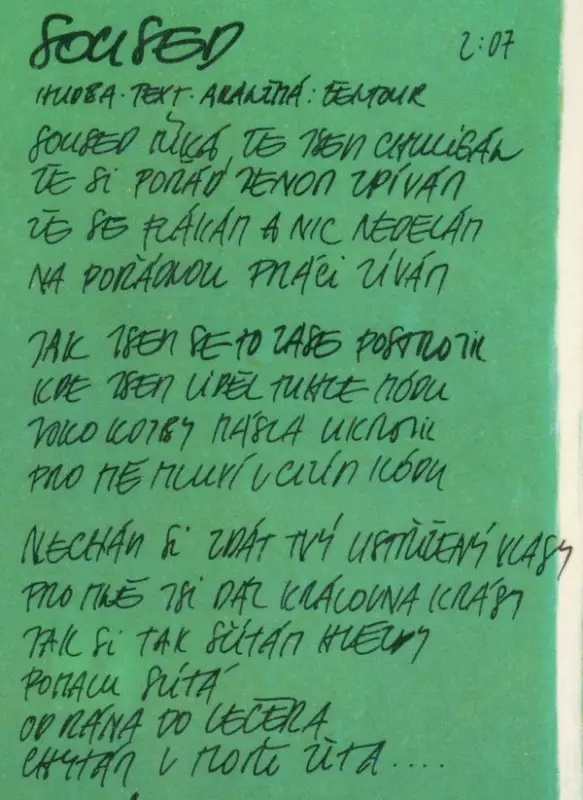 SOUSED 2:07
HUDBA. TEXT. ARANŽMÁ:
SOUSED ŘÍKÁ, ŽE JSEM CHULIGÁN
ŽE SI POŘÁD JENOM ZPÍVÁM
ŽE SE FLÁKÁM A NIC NEDĚLÁM
NA POŘÁDNOU PRÁCI ZÍVÁM
JAK JSEM SE TO ZASE POSTROJIL
KDE JSEM UVIDĚL TUHLE MÓDU
JOKO KDYBY MÁSLA UKROJIL
PRO MĚ MLUVÍ V CIZÍM KÓDU
NECHÁM SI ZDÁT TVÝ USTŘIŽENÝ VLASY
PRO MNĚ JSI DÁL KRÁLOVNA KRÁSY
JAK SI TAK SČÍTÁM HVĚZDY
POMALU SVÍTÁ
OD RÁNA DO VEČERA
CHYTÁM V MOŘI ŽITA....